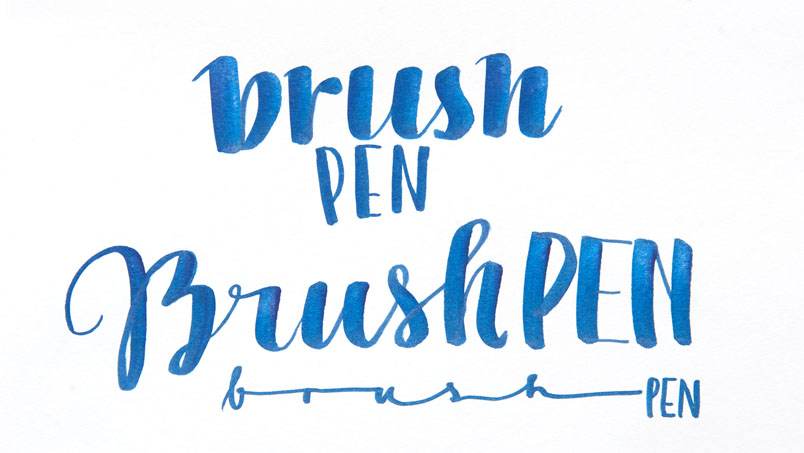 brush
PEN
BrushPEN
brush PEN